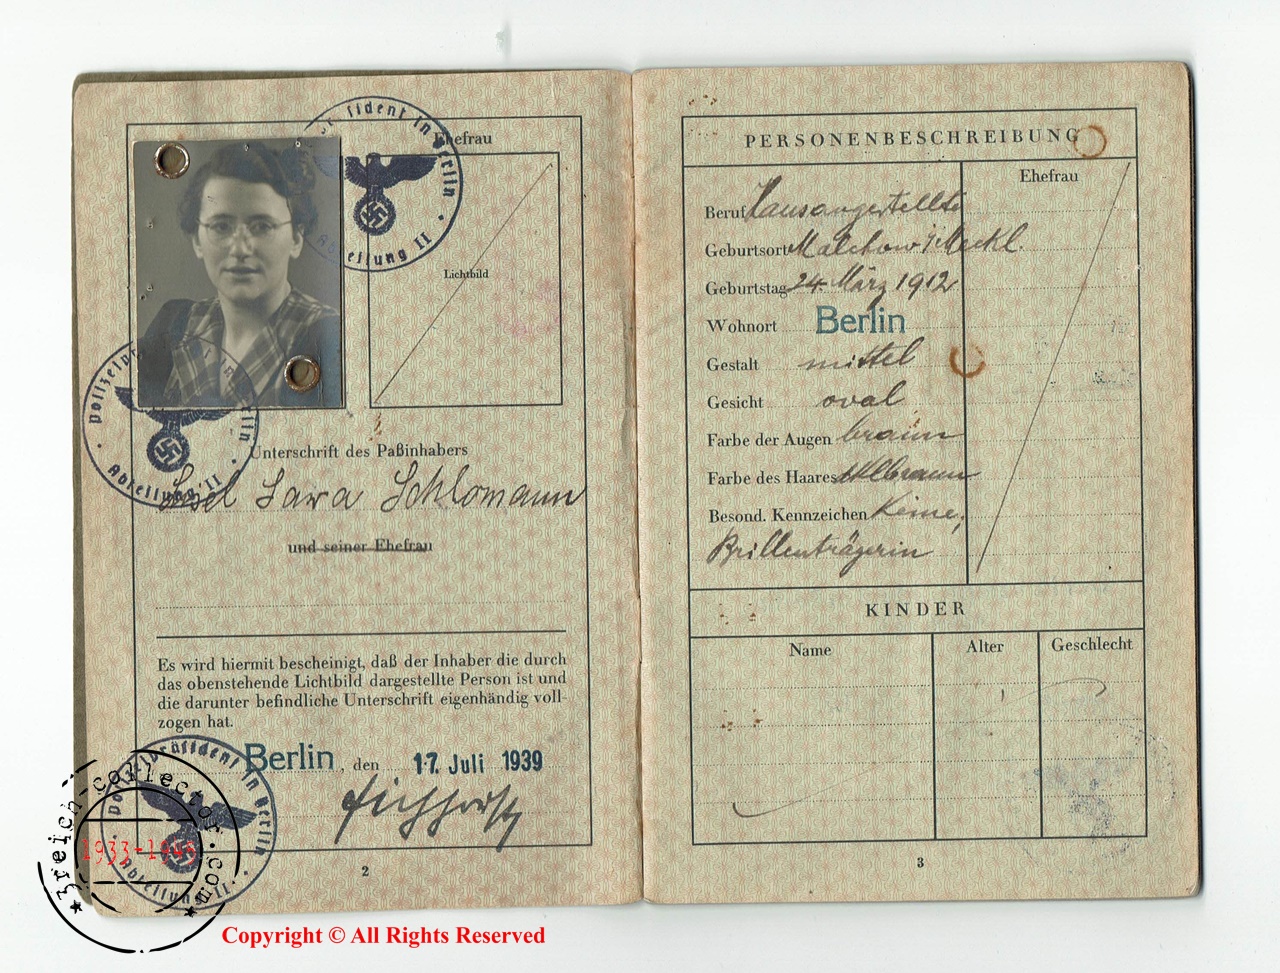 Ehefrau
Lichtbild
Polizeipräsident in Berlin
Abteilung II
Polizeipräsident in Berlin
Abteilung II
Unterschrift des Paßinhabers
Lisel Sara Schlomann
und seiner Ehefrau
Es wird hiermit bescheinigt, daß der Inhaber die durch
das obenstehende Lichtbild dargestellte Person ist und
die darunter befindliche Unterschrift eigenhändig voll-
zogen hat.
Berlin, den 17. Juli 1939
Polizeipräsident in Berlin
Abteilung II
2
PERSONENBESCHREIBUNG
Ehefrau
Beruf Hausangestellte
Geburtsort Malchow i/Meckl.
Geburtstag 24. März 1912
Wohnort Berlin
Gestalt mittel
Gesicht oval
Farbe der Augen braun
Farbe des Haares dklbraun
Besond. Kennzeichen Keine,
Brillenträgerin
KINDER
Name Alter Geschlecht
3
3reich-collector.com
1933-1945
Copyright © All Rights Reserved